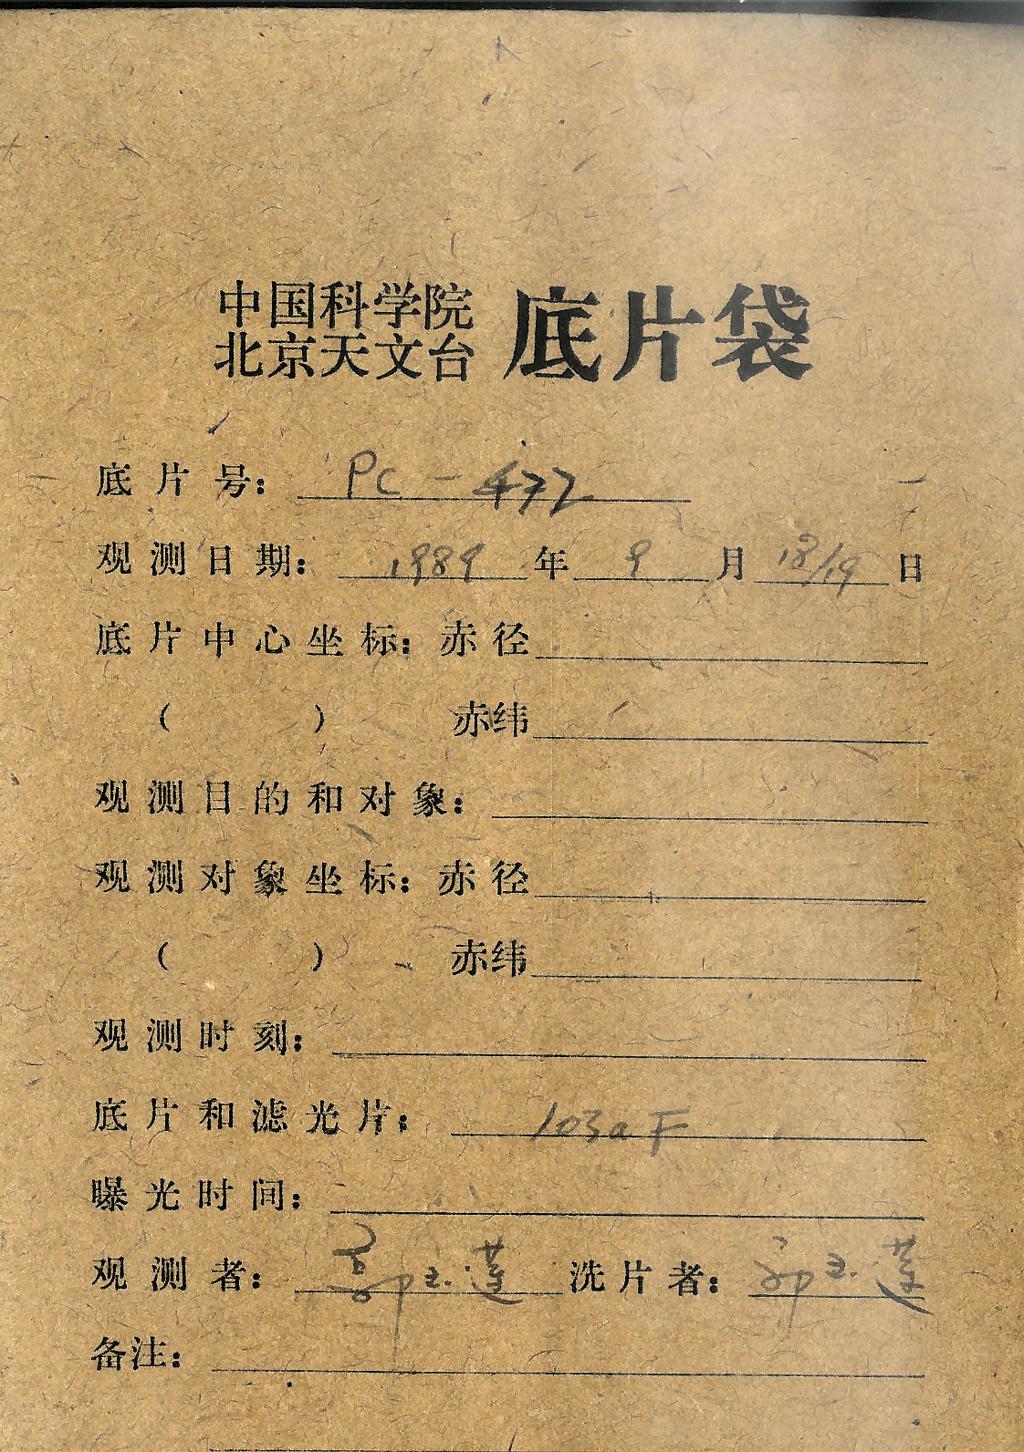 中国科学院
北京天文台
底片袋
底片号：PC-472
观测日期：1989年9月18/19日
底片中心坐标：赤径
（ ） 赤纬
观测目的和对象：
观测对象坐标：赤径
（ ） 赤纬
观测时刻：
底片和滤光片：103aF
曝光时间：
观测者：郭玉莲 洗片者：郭玉莲
备注：